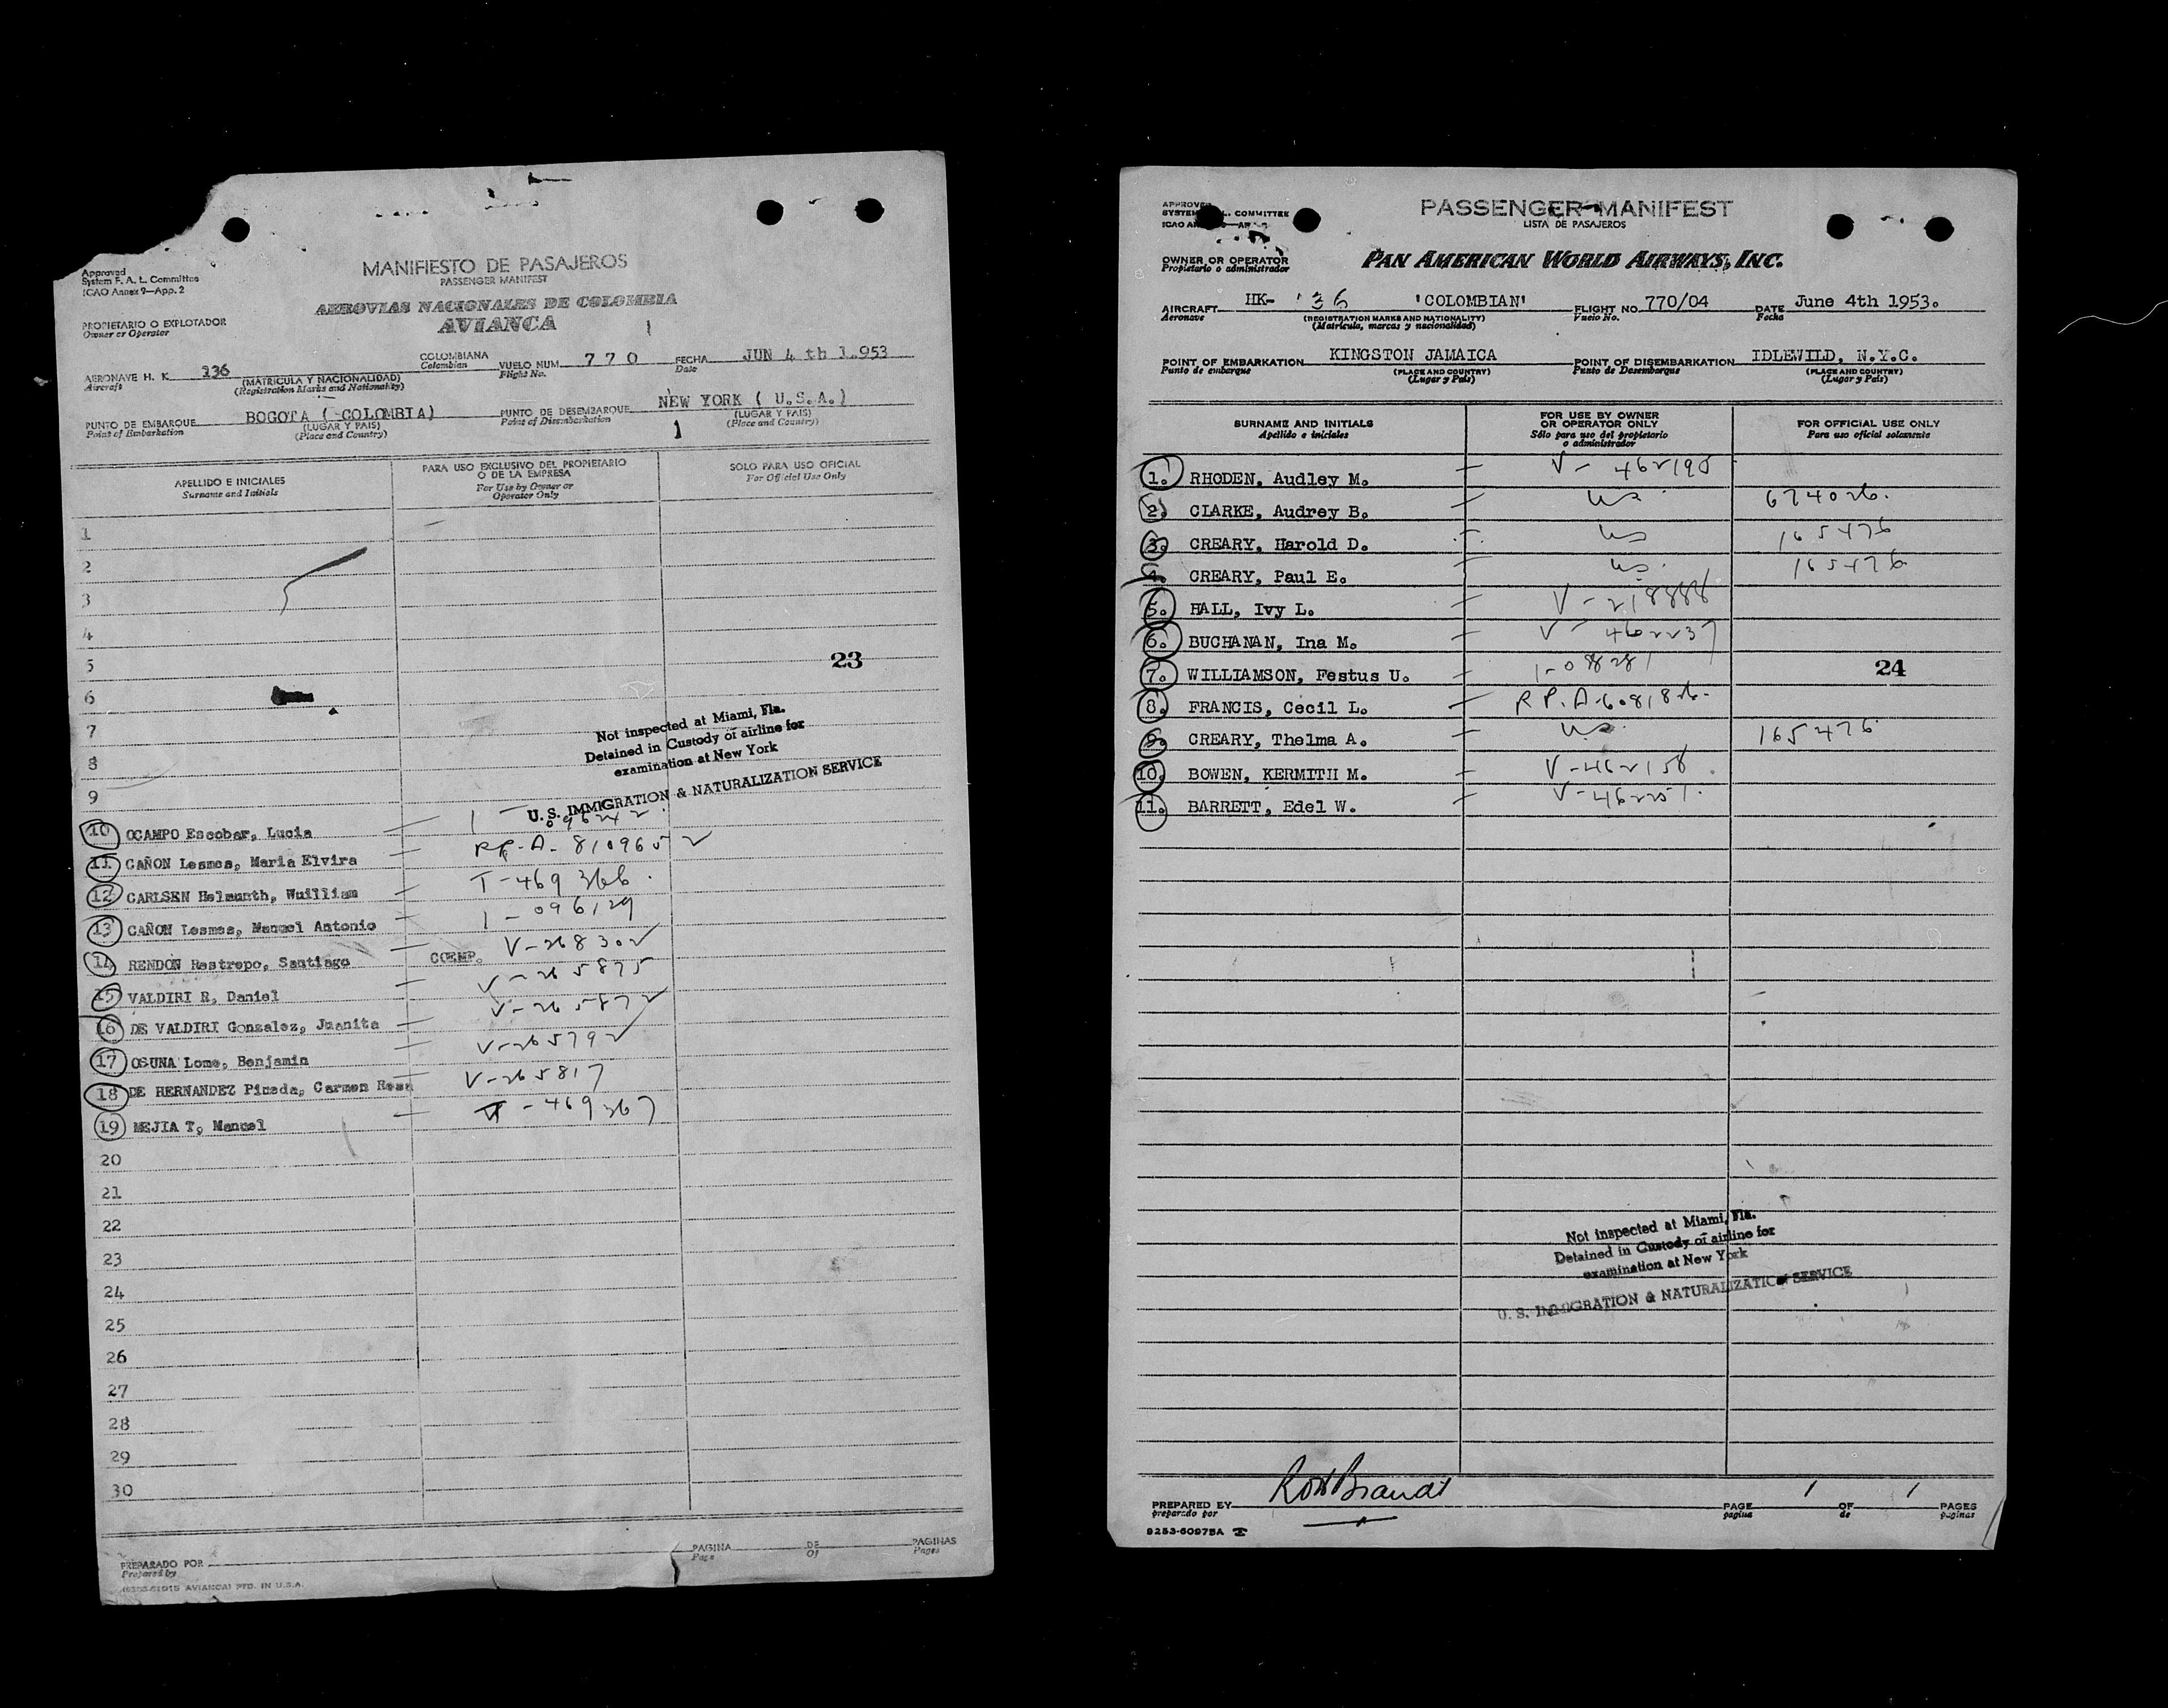 Approved
System F. A. L. Committee
ICAO Annex 9—App. 2
MANIFIESTO DE PASAJEROS
PASSENGER MANIFEST
AEROVIAS NACIONALES DE COLOMBIA
AVIANCA
PROPIETARIO O EXPLOTADOR
Owner or Operator
AERONAVE H. K. 136 COLOMBIANA VUELO NUM. 770 FECHA JUN 4 th 1.953
Aircraft (MATRICULA Y NACIONALIDAD) Colombian Flight No. Date
(Registration Marks and Nationality)
PUNTO DE EMBARQUE BOGOTA ( COLOMBIA) PUNTO DE DESEMBARQUE NEW YORK ( U.S.A.)
Point of Embarkation (LUGAR Y PAIS) Point of Disembarkation (LUGAR Y PAIS)
(Place and Country) 1 (Place and Country)
APELLIDO E INICIALES
Surname and Initials
PARA USO EXCLUSIVO DEL PROPIETARIO
O DE LA EMPRESA
For Use by Owner or
Operator Only
SOLO PARA USO OFICIAL
For Official Use Only
1
2
3
4
5 23
6
7
8
9
Not inspected at Miami, Fla.
Detained in Custody of airline for
examination at New York
U. S. IMMIGRATION & NATURALIZATION SERVICE
10 OCAMPO Escobar, Lucia — 1 - 096242
11 CAÑON Lesmes, Maria Elvira — RP-A-8109652
12 CARLSEN Helmunth, Wuilliam — T-469366.
13 CAÑON Lesmes, Manuel Antonio — 1-096129
14 RENDON Restrepo, Santiago — COEMP. V-268302
15 VALDIRI R, Daniel — V-265875
16 DE VALDIRI Gonzalez, Juanita — V-265872
17 OSUNA Lome, Benjamin — V-265792
18 DE HERNANDEZ Pineda, Carmen Rosa — V-265817
19 MEJIA T, Manuel — T-469367
20
21
22
23
24
25
26
27
28
29
30
PREPARADO POR
Prepared by
PAGINA DE PAGINAS
Page Of Pages
AVIANCA) PTD. IN U.S.A.
APPROVED
SYSTEM COMMITTEE
PASSENGER MANIFEST
LISTA DE PASAJEROS
OWNER OR OPERATOR
Propietario o administrador
PAN AMERICAN WORLD AIRWAYS, INC.
AIRCRAFT HK- '36 'COLOMBIAN' FLIGHT NO. 770/04 DATE June 4th 1953.
Aeronave (REGISTRATION MARKS AND NATIONALITY) Vuelo No. Fecha
(Matrícula, marcas y nacionalidad)
POINT OF EMBARKATION KINGSTON JAMAICA POINT OF DISEMBARKATION IDLEWILD, N.Y.C.
Punto de embarque (PLACE AND COUNTRY) Punto de Desembarque (PLACE AND COUNTRY)
(Lugar y País) (Lugar y País)
SURNAME AND INITIALS
Apellido e iniciales
FOR USE BY OWNER
OR OPERATOR ONLY
Sólo para uso del propietario
o administrador
FOR OFFICIAL USE ONLY
Para uso oficial solamente
1. RHODEN, Audley M. — V - 462195
2. CLARKE, Audrey B. — US 674026.
3. CREARY, Harold D. — US 165476
4. CREARY, Paul E. — US. 165476
5. HALL, Ivy L. — V-218888
6. BUCHANAN, Ina M. — V - 462237
7. WILLIAMSON, Festus U. — 1-098281 24
8. FRANCIS, Cecil L. — R P.A-6081826.
9. CREARY, Thelma A. — US. 165476
10. BOWEN, KERMITH M. — V-462158
11. BARRETT, Edel W. — V-462251.
Not inspected at Miami, Fla.
Detained in Custody of airline for
examination at New York
U. S. IMMIGRATION & NATURALIZATION SERVICE
PREPARED BY PAGE 1 OF 1 PAGES
preparado por pagina de paginas
9253-60975A